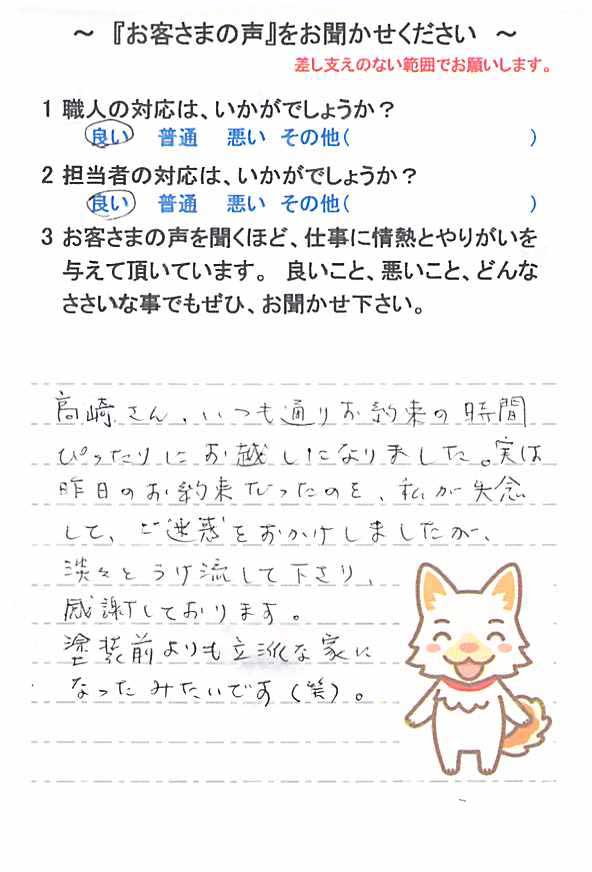 ～ 『お客さまの声』をお聞かせください ～
差し支えのない範囲でお願いします。
1 職人の対応は、いかがでしょうか？
良い 普通 悪い その他( )
2 担当者の対応は、いかがでしょうか？
良い 普通 悪い その他( )
3 お客さまの声を聞くほど、仕事に情熱とやりがいを
与えて頂いています。 良いこと、悪いこと、どんな
ささいな事でもぜひ、お聞かせ下さい。
高崎さん、いつも通りお約束の時間
ぴったりにお越しになりました。実は
昨日のお約束だったのを、私が失念
して、ご迷惑をおかけしましたが、
淡々とうけ流して下さり、
感謝しております。
塗装前よりも立派な家に
なったみたいです（笑）。